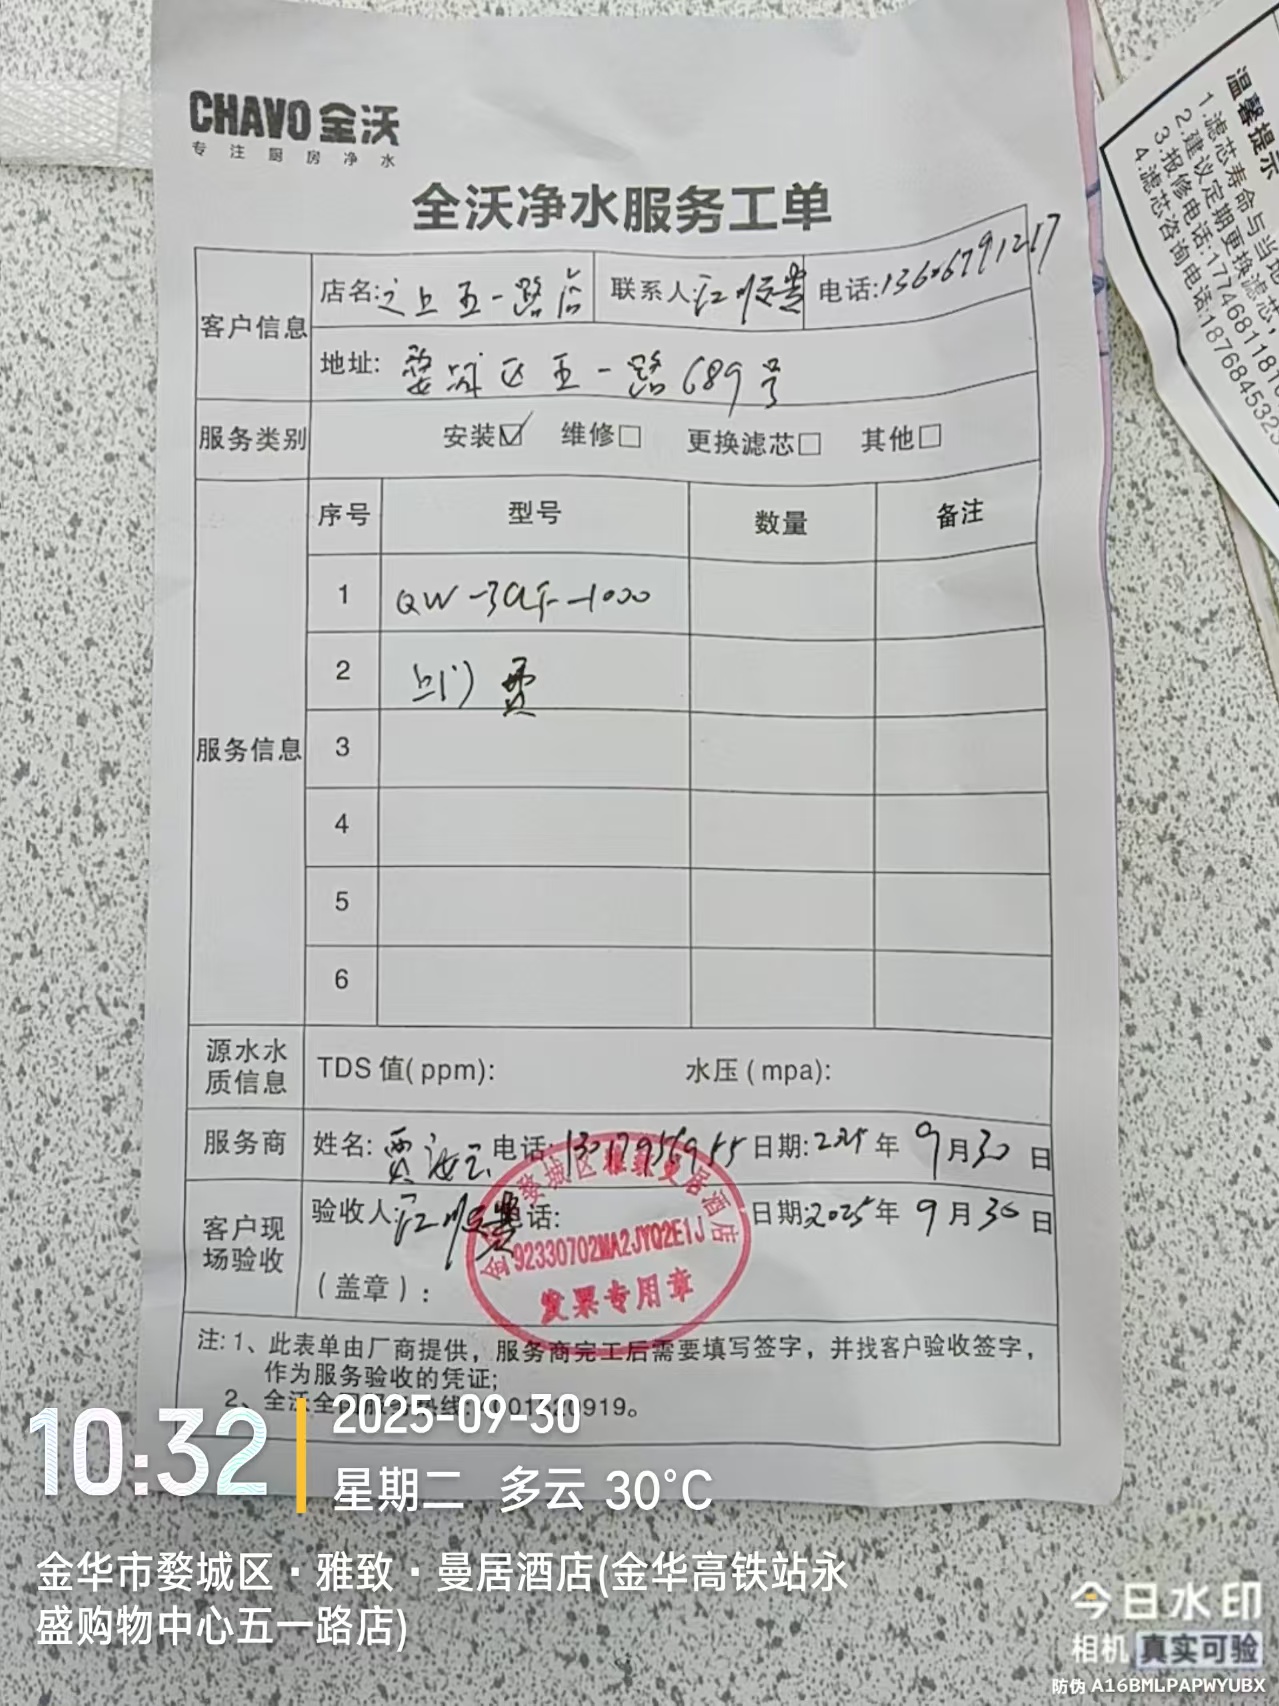 CHAVO 全沃
专注厨房净水
全沃净水服务工单
客户信息
店名:之上五一路店 联系人:江顺贵 电话:13606791217
地址:婺城区五一路689号
服务类别 安装☑ 维修□ 更换滤芯□ 其他□
服务信息
序号 型号 数量 备注
1 QW-3
2 上门费
3
4
5
6
源水水质信息 TDS 值(ppm): 水压(mpa):
服务商 姓名:贾 电话: 日期:2025年9月30日
客户现场验收 验收人:江顺贵 电话: 日期:2025年9月30日
(盖章):
金 婺城区雅致曼居酒店
92330702MA2JYQ2E1J
发票专用章
注:1、此表单由厂商提供，服务商完工后需要填写签字，并找客户验收签字，
作为服务验收的凭证;
2、全沃全国服务热线: 0919。
温馨提示
1.滤芯寿命与当地
2.建议定期更换滤芯，
3.报修电话:1774681181
4.滤芯咨询电话:1876845323
10:32
2025-09-30
星期二 多云 30°C
金华市婺城区·雅致·曼居酒店(金华高铁站永
盛购物中心五一路店)
今日水印
相机 真实可验
防伪 A16BMLPAPWYUBX